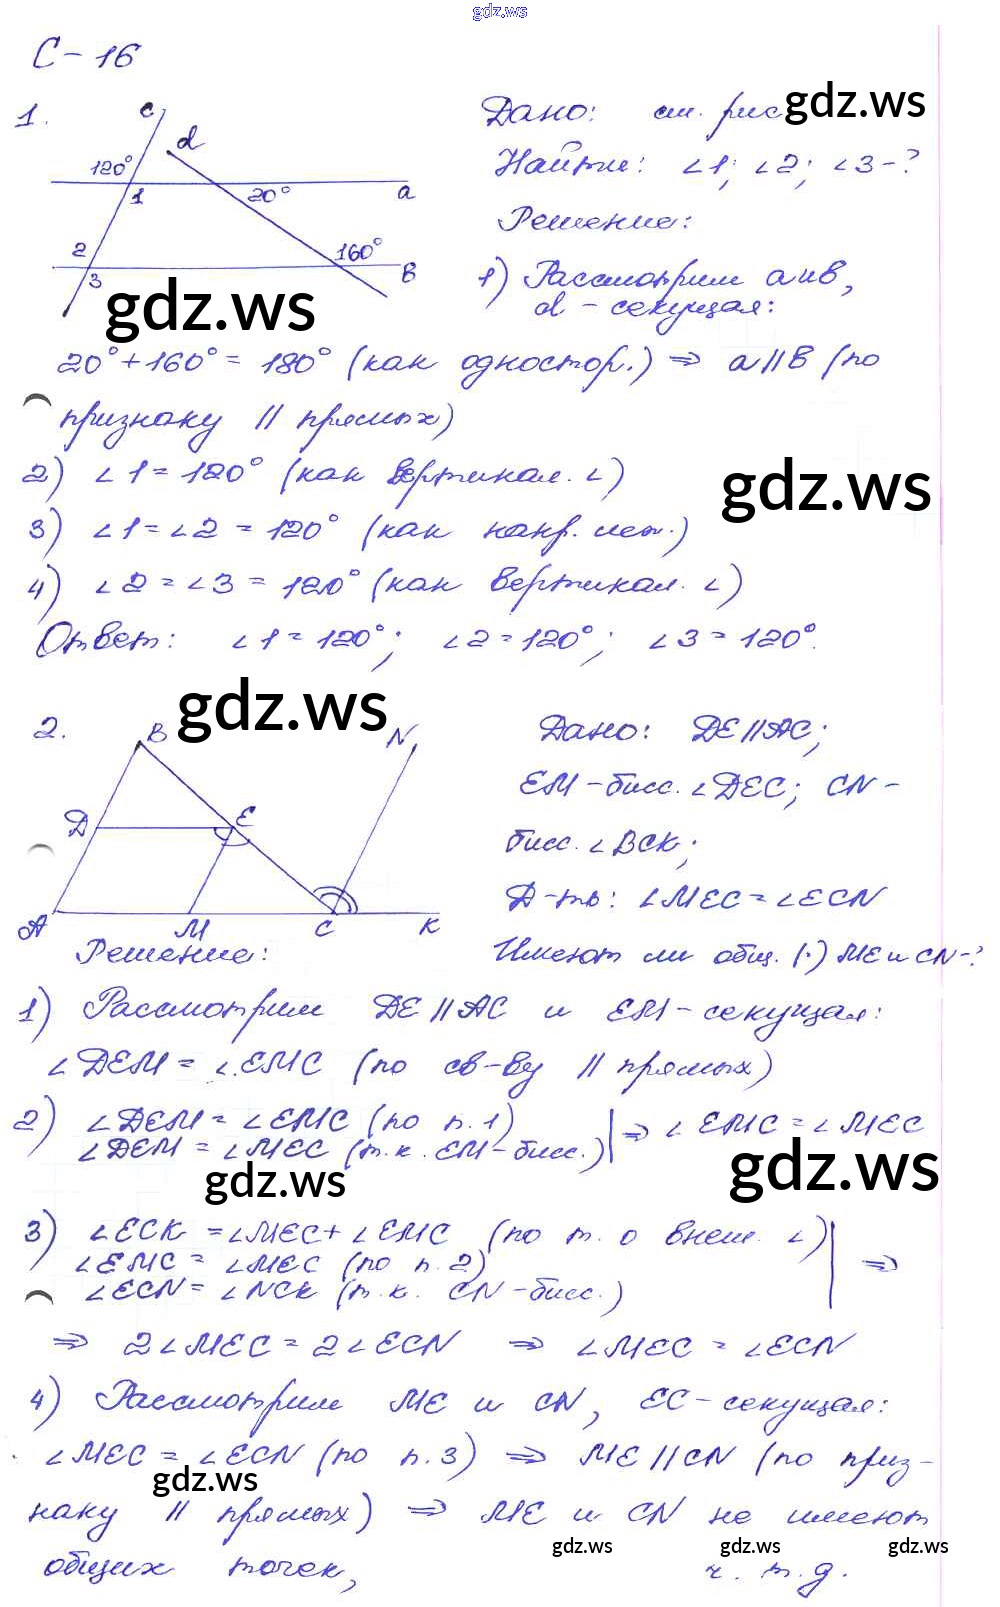 gdz.ws
С-16
1.
c
d
120°
1
20°
a
2
160°
3
в
Дано: см. рис
gdz.ws
Найти: ∠1; ∠2; ∠3-?
Решение:
1) Рассмотрим а и в,
d - секущая:
gdz.ws
20°+160°= 180° (как одностор.) ⇒ а//в (по
признаку // прямых)
2) ∠1=120° (как вертикал. ∠)
gdz.ws
3) ∠1=∠2 = 120° (как накр. леж.)
4) ∠2 = ∠3 = 120° (как вертикал. ∠)
Ответ: ∠1=120°; ∠2=120°; ∠3=120°.
gdz.ws
2.
B
N
D
E
A
M
C
K
Дано: DE//AC;
EM-бисс. ∠DEC; CN-
бисс. ∠BCK;
Д-ть: ∠MEC=∠ECN
Имеют ли общ. (·) ME и CN-?
Решение:
1) Рассмотрим DE//AC и EM-секущая:
∠DEM = ∠EMC (по св-ву // прямых)
2) ∠DEM = ∠EMC (по п.1)
∠DEM = ∠MEC (т.к. EM-бисс.) ⇒ ∠EMC = ∠MEC
gdz.ws
gdz.ws
3) ∠ECK =∠MEC+∠EMC (по т. о внеш. ∠)
∠EMC = ∠MEC (по п.2) ⇒
∠ECN= ∠NCK (т.к. CN-бисс.)
⇒ 2∠MEC=2∠ECN ⇒ ∠MEC = ∠ECN
4) Рассмотрим ME и CN, EC-секущая:
∠MEC = ∠ECN (по п.3) ⇒ ME//CN (по приз-
gdz.ws
наку // прямых) ⇒ ME и CN не имеют
gdz.ws gdz.ws gdz.ws
общих точек, ч.т.д.